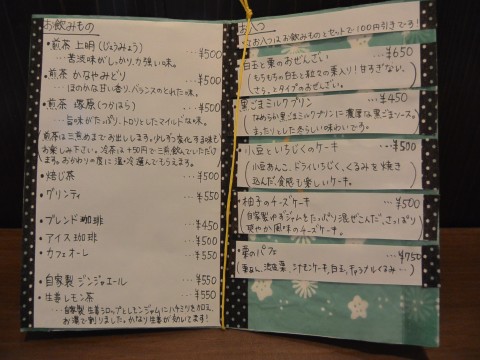 お飲みもの
・煎茶 上明(じょうみょう) …¥500
苦渋味がしっかり、力強い味。
・煎茶 かなやみどり …¥500
ほのかな甘い香り、バランスのとれた味。
・煎茶 塚原(つかはら) …¥500
旨味がたっぷり、トロリとしたマイルドな味。
(煎茶は三煎めまでお出しします。少しずつ変化する味も
お楽しみ下さい。冷茶は+50円で二煎飲んでいただけ
ます。おかわりの度に温・冷選んでもらえます。)
・焙じ茶 …¥500
・グリンティ …¥550
・ブレンド珈琲 …¥450
・アイス珈琲 …¥500
・カフェオーレ …¥550
・自家製ジンジャエール …¥550
・生姜レモン茶 …¥550
(自家製生姜シロップとレモンジャムにハチミツをクロス、
お湯で割りました。かなり生姜が効いてます!)
お八つ
☆お八つはお飲みものとセットで100円引きです!
・白玉と栗のおぜんざい …¥650
(もちもちの白玉と粒々の栗入り!甘すぎない、
さらっとタイプのおぜんざい。)
・黒ごまミルクプリン …¥450
(なめらか黒ごまミルクプリンに濃厚な黒ごまソース。
まったりした素らしい味わいです。)
・小豆といちじくのケーキ …¥500
(小豆あんこ、ドライいちじく、くるみを焼き
込んだ、食感も楽しいケーキ。)
・柚子のチーズケーキ …¥500
(自家製ゆずジャムをたっぷり混ぜこんだ、さっぱり
爽やか風味のチーズケーキ。)
・栗のパフェ …¥750
(栗あん、渋皮栗、コーヒーケーキ、白玉、キャラメルくるみ…)